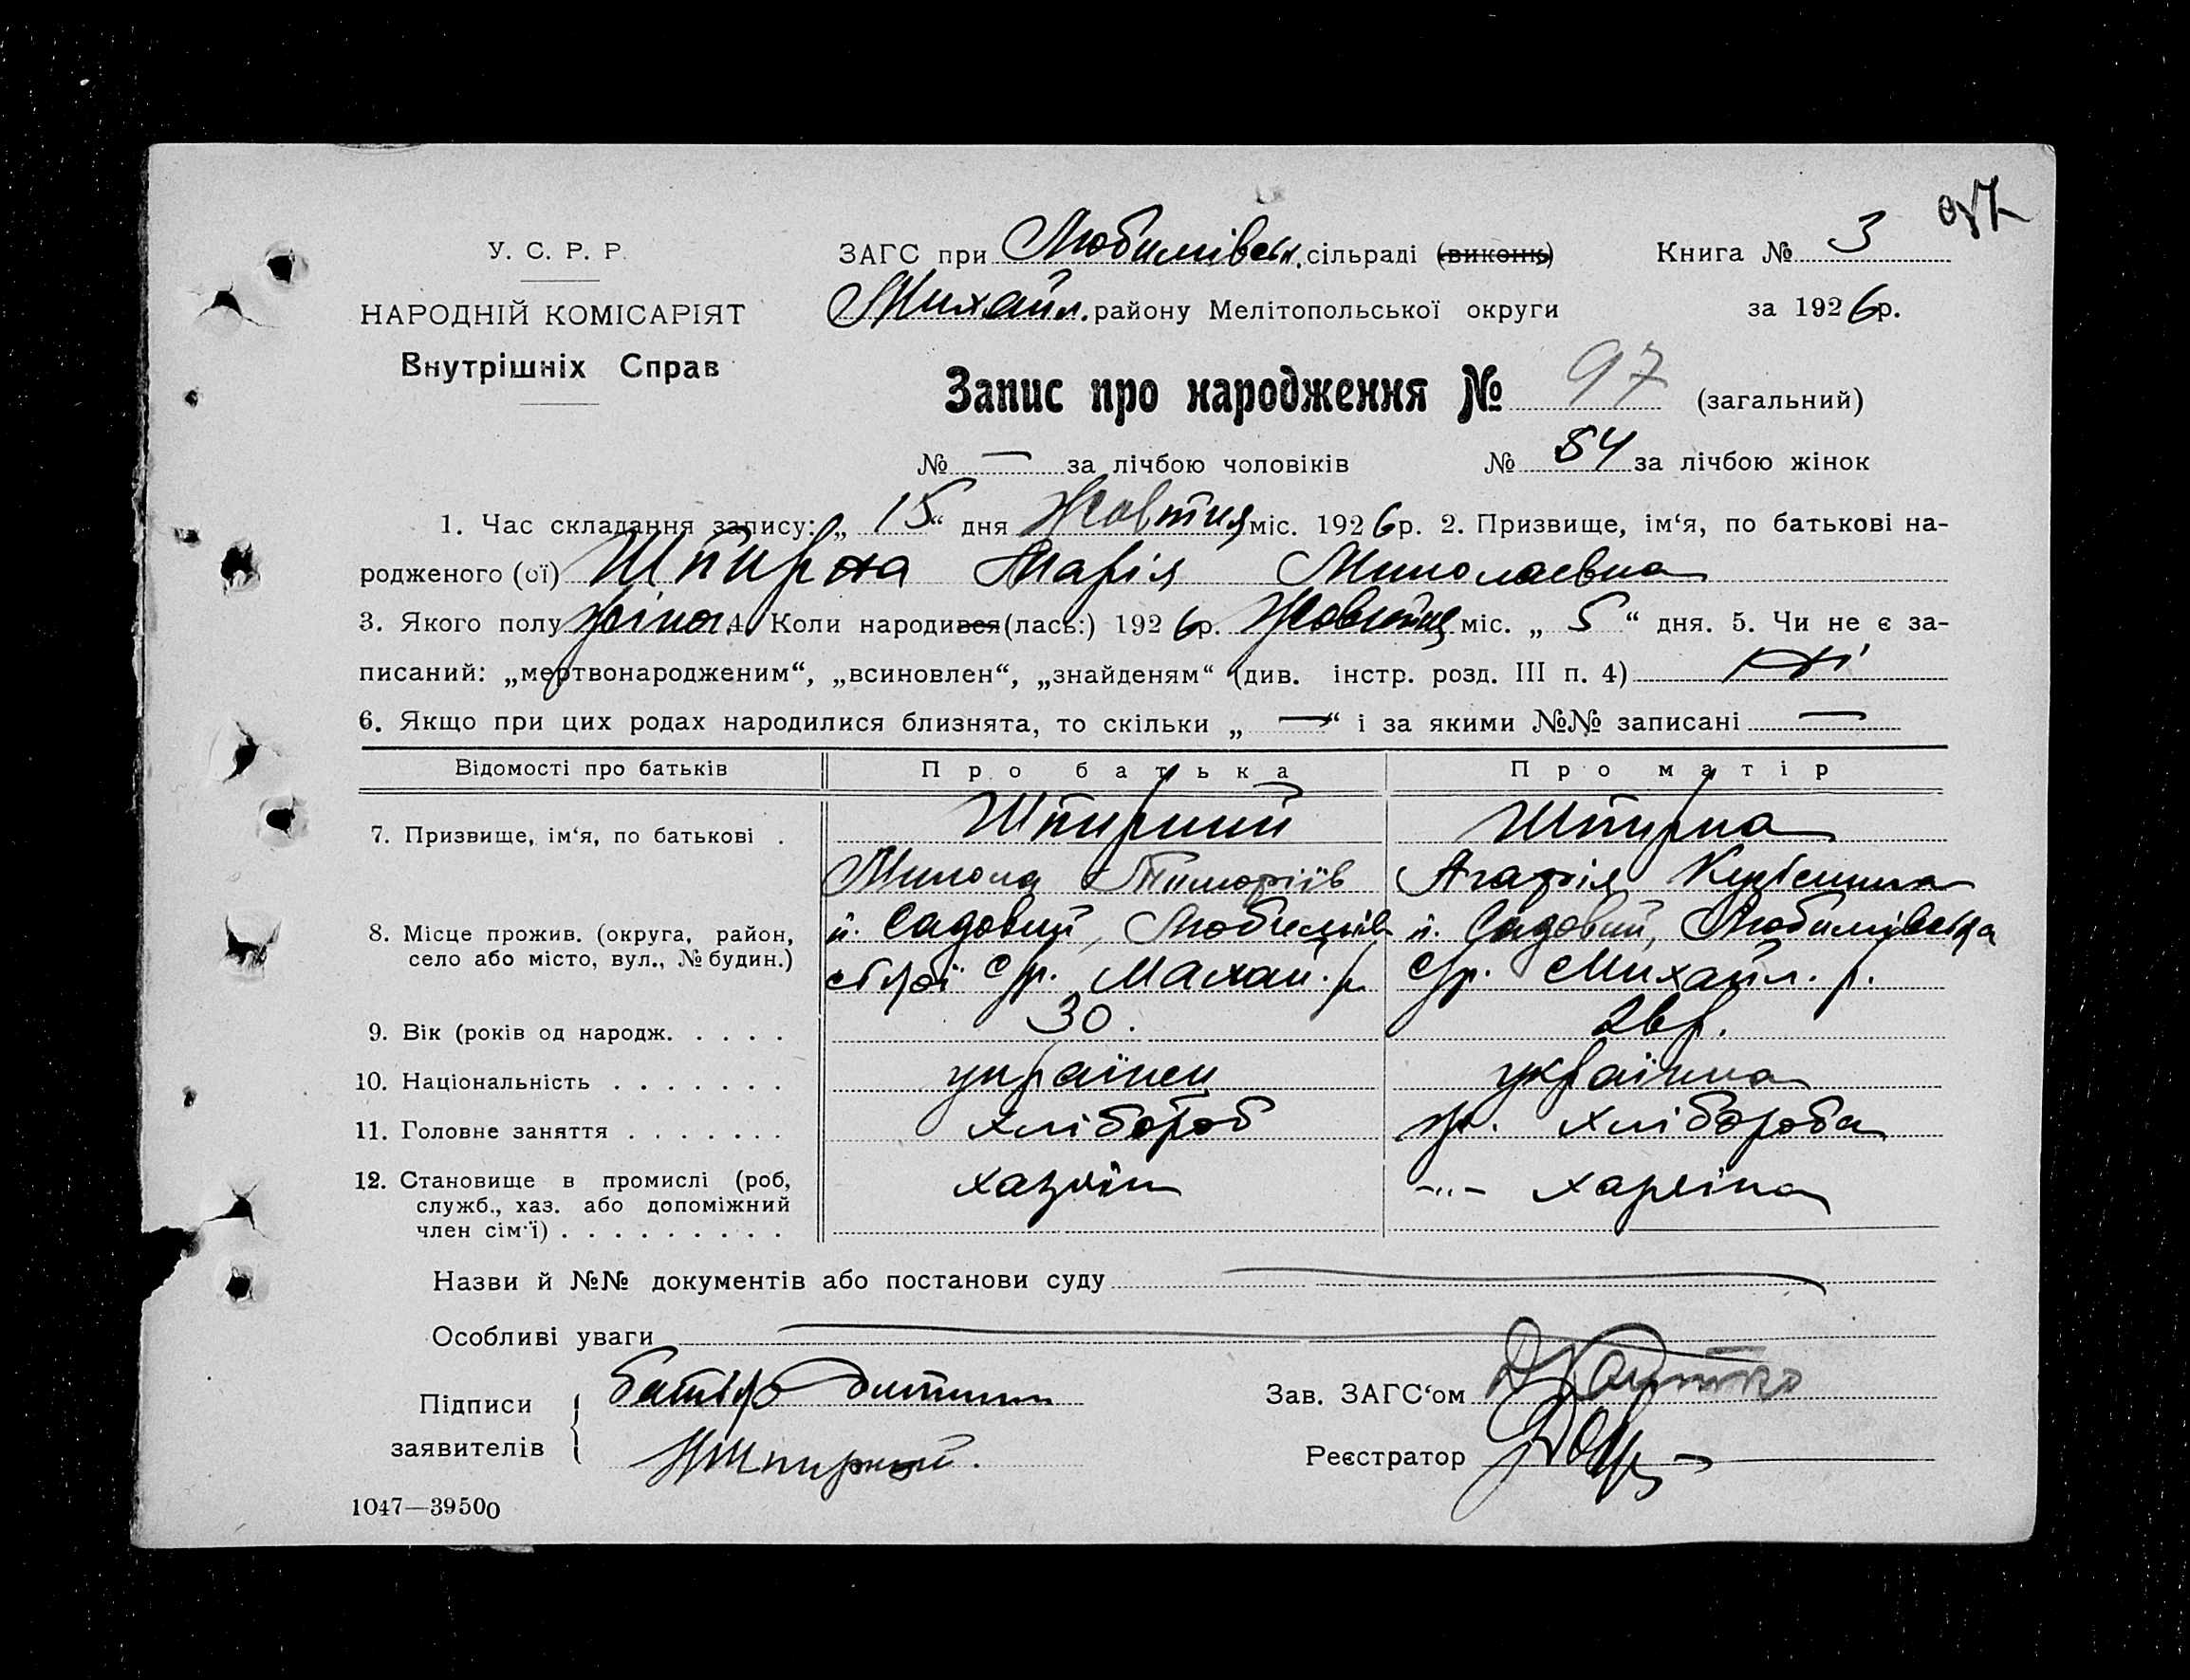 У. С. Р. Р.
НАРОДНІЙ КОМІСАРІЯТ
Внутрішніх Справ
ЗАГС при Любимівськ. сільраді (виконк)
Книга № 3
Михайл. району Мелітопольської округи
за 1926 р.
Запис про народження № 97 (загальний)
№ — за лічбою чоловіків № 54 за лічбою жінок
1. Час складання запису: „ 15 “ дня Жовтня міс. 1926 р. 2. Призвище, ім‘я, по батькові на-
родженого (ої) Шпирна Марія Миколаєвна
3. Якого полу жіноч. 4. Коли народився (лась:) 1926 р. Жовтня міс. „ 5 “ дня. 5. Чи не є за-
писаний: „мертвонародженим“, „всиновлен“, „знайденям“ (див. інстр. розд. III п. 4) ні
6. Якщо при цих родах народилися близнята, то скільки „ — “ і за якими №№ записані —
Відомості про батьків Про батька Про матір
7. Призвище, ім‘я, по батькові . Шпирний Шпирна
Микола Тимофіїв Агафія
8. Місце прожив. (округа, район, п. Садовий, Любимів п. Садовий, Любимівська
село або місто, вул., № будин.) с/р. Михай. р. с/р. Михайл. р.
9. Вік (років од народж. . . . . 30. 26 р.
10. Національність . . . . . . . українец українка
11. Головне заняття . . . . . . . хлібороб хлібороба
12. Становище в промислі (роб, хазяїн -„- хазяїна
служб., хаз. або допоміжний
член сім‘ї) . . . . . . . . .
Назви й №№ документів або постанови суду —
Особливі уваги —
Підписи батько дитини
Зав. ЗАГС‘ом
заявителів Шпирний.
Реєстратор
1047—39500